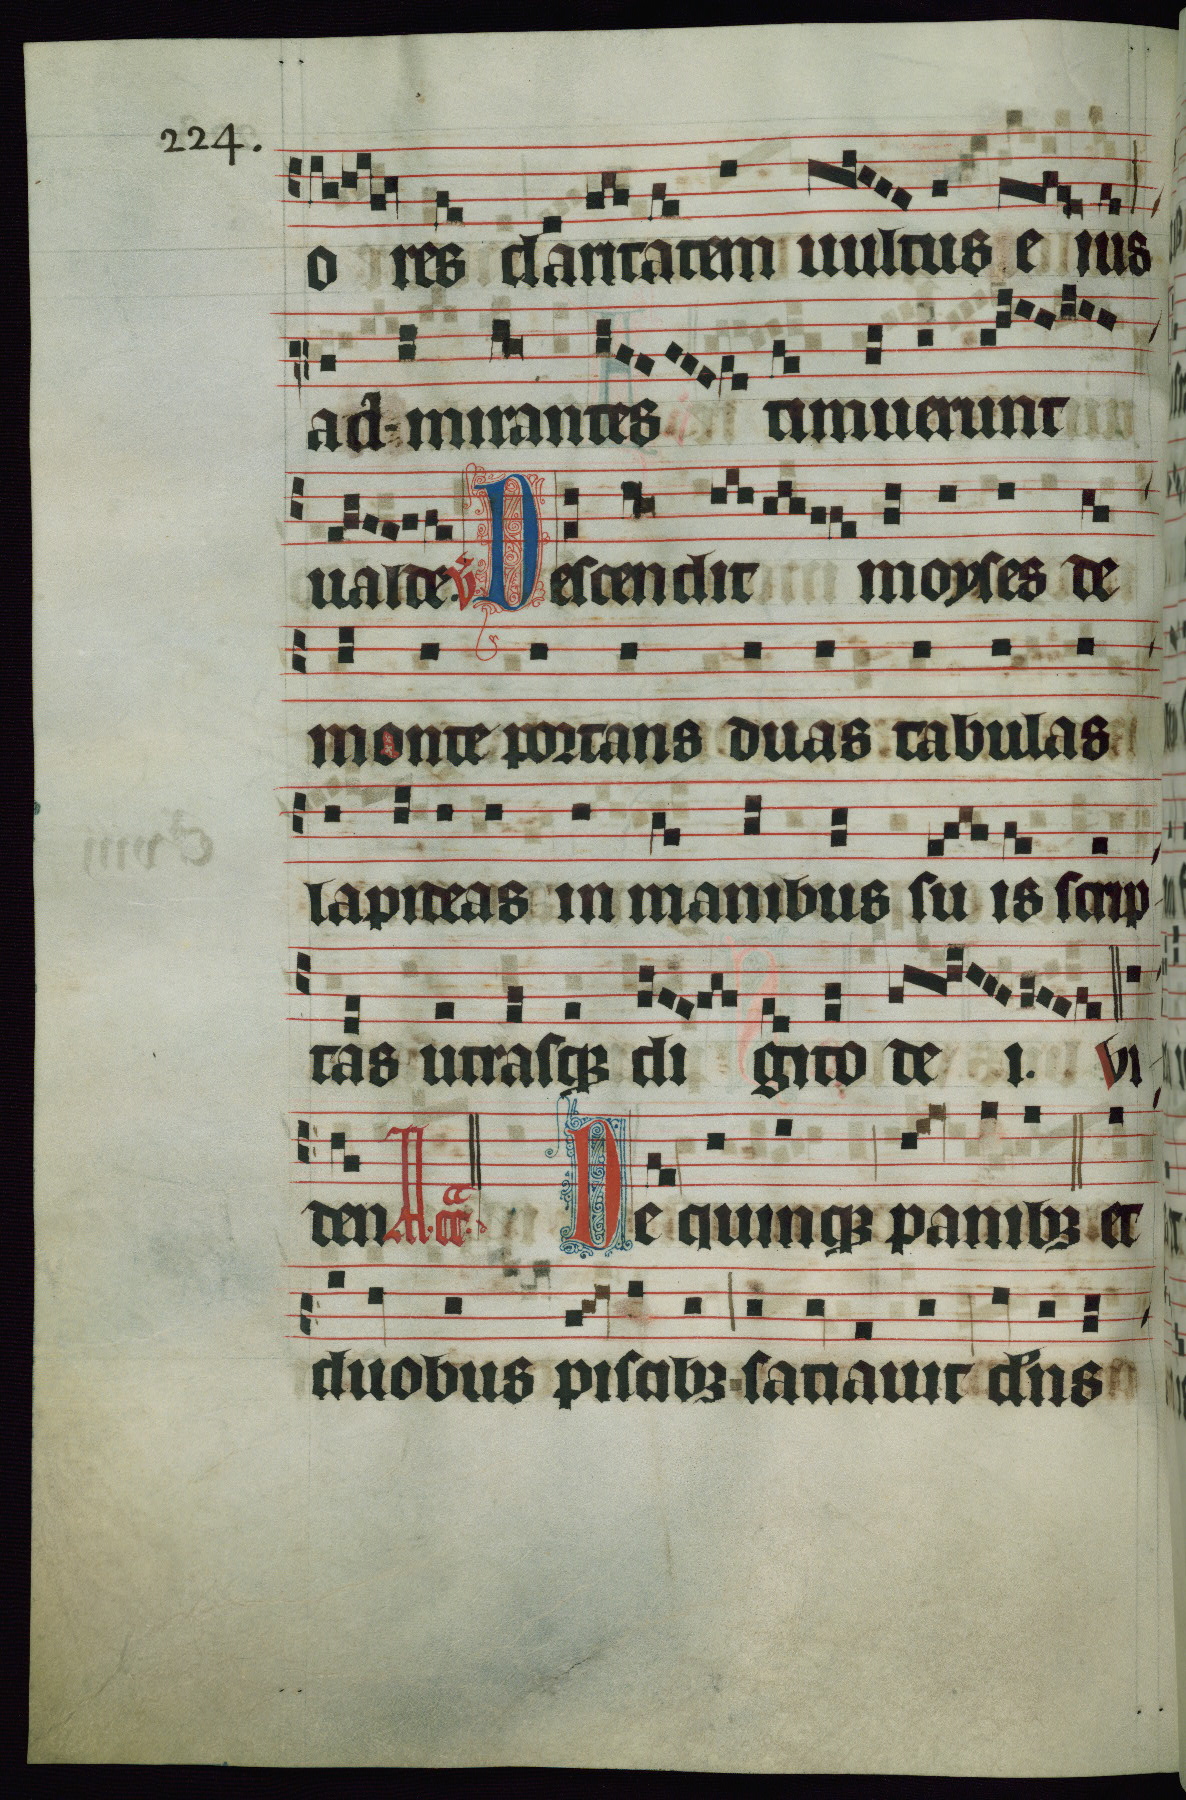 224.
o res claritatem uultus e ius
ad-mirantes timuerunt
ualde. v̄. Descendit moyses de
monte portans duas tabulas
lapideas in manibus su is scrip
tas utrasqꝫ di gito de i. Vi
den A. cc̄. De quinqꝫ panibꝫ et
duobus piscibꝫ satiauit dn̄s